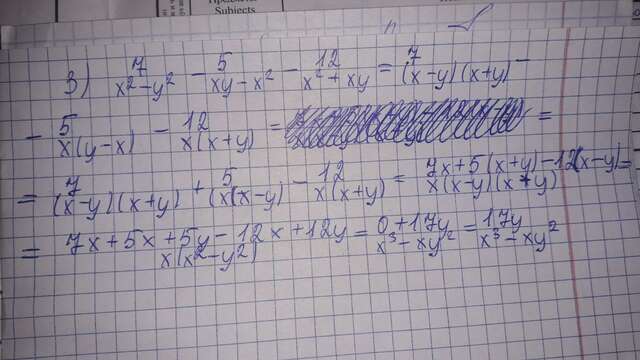 Subjects
3) 7/(x²-y²) - 5/(xy-x²) - 12/(x²+xy) = 7/((x-y)(x+y)) -
- 5/(x(y-x)) - 12/(x(x+y)) = =
= 7/((x-y)(x+y)) + 5/(x(x-y)) - 12/(x(x+y)) = (7x+5(x+y)-12(x-y))/(x(x-y)(x+y)) =
= (7x+5x+5y-12x+12y)/(x(x²-y²)) = (0+17y)/(x³-xy²) = 17y/(x³-xy²)